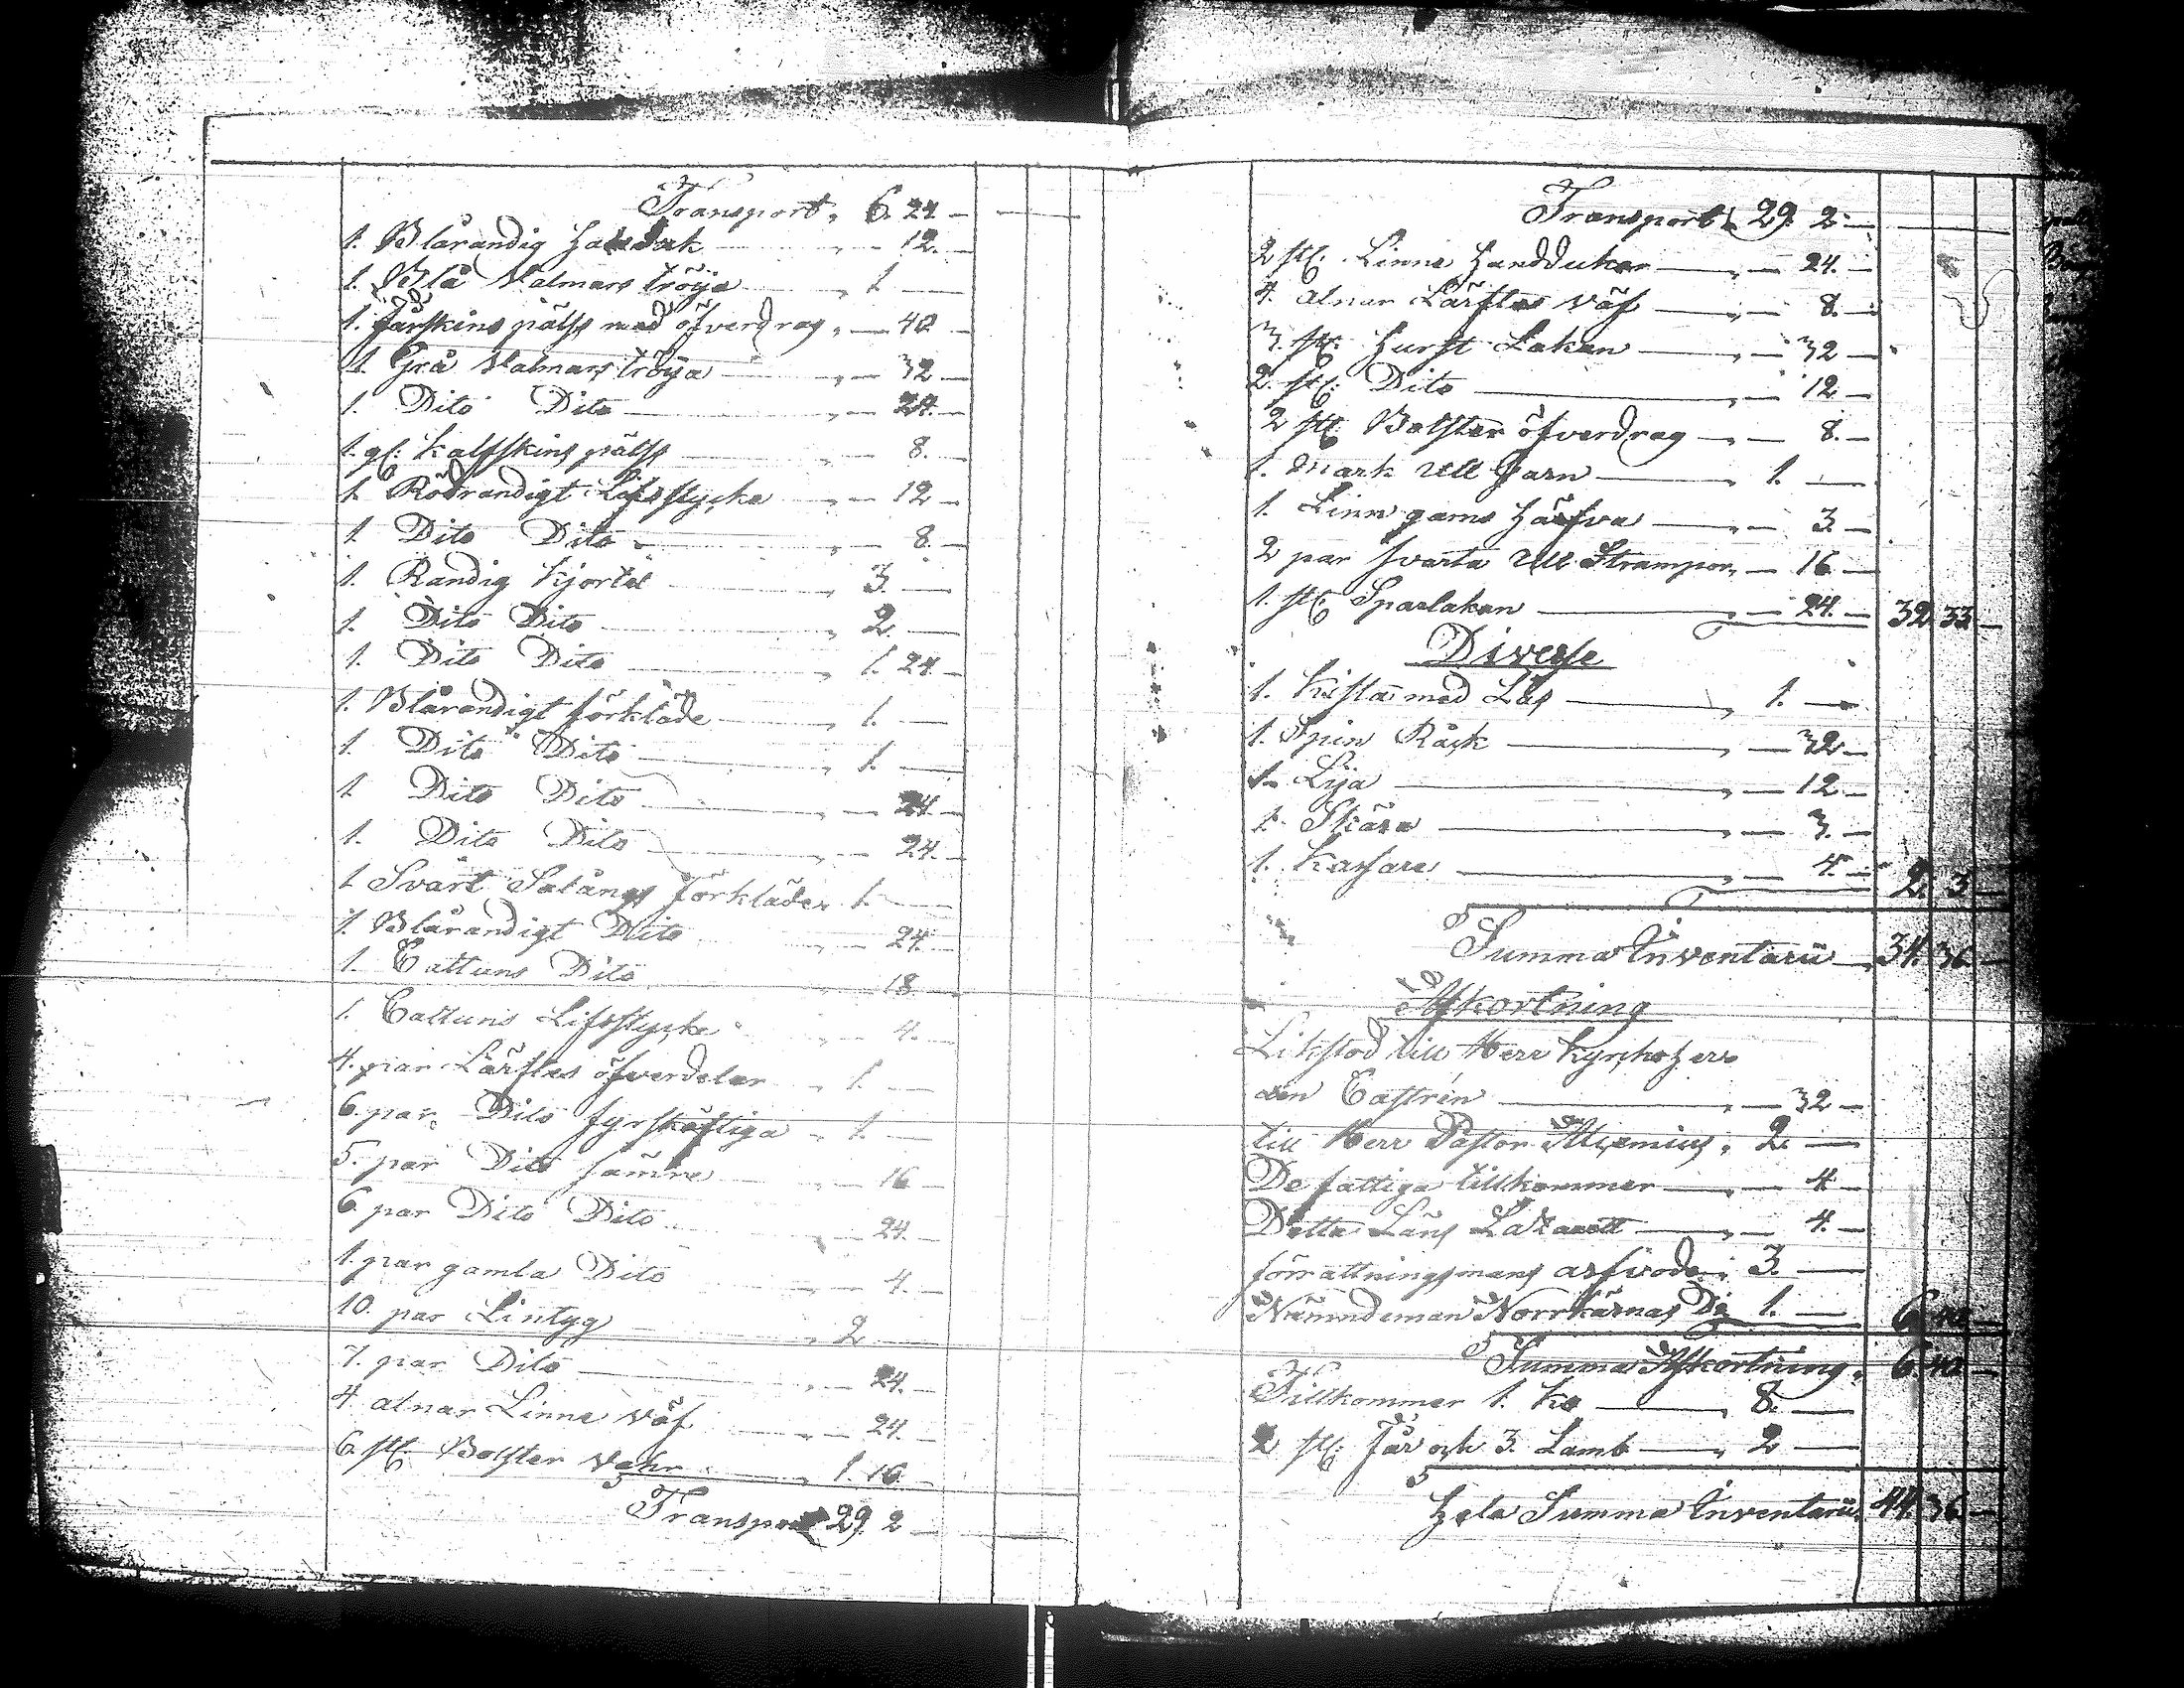 Transport, 6. 24. —
1. Blårandig Halsduk — 12. —
1. Blå Valmars tröija — 1. —
1. Fårskins pälss med öfverdrag, — 40 —
1. Grå Valmars tröija — 32 —
1. Dito Dito — 24. —
1. gl: Kalfskins pälss — 8. —
1. Rödrandigt Lifsstycke — 12 —
1. Dito Dito — 8. —
1. Randig Kjortel — 3. —
1. Dito Dito — 2. —
1. Dito Dito — 1. 24. —
1. Blårandigt förkläde — 1. —
1. Dito Dito — 1. —
1. Dito Dito — 24. —
1. Dito Dito — 24. —
1 Svart Salångs förkläde, 1. —
1. Blårandigt Dito — 24. —
1. Cattuns Dito — 18 —
1. Cattuns Lifsstycke — 4. —
4. par Lärftes öfverdelar — 1. —
6. par Dito fyrskäftiga — 1. —
5. par Dito sämre — 16 —
6 par Dito Dito — 24. —
1. par gamla Dito — 4. —
10. par Lintyg — 2 —
7. par Dito — 24. —
4. alnar Linne väf — 24. —
6. st: Bolster vahr — 1. 16. —
Transport 29. 2 —
Transport 29. 2 —
2 st: Linne Handduker — 24. —
4. alnar Lärftes väf — 8. —
3. st: Hurst Lakan — 32 —
2. st: Dito — 12 —
2 st: Bolster öfverdrag — 8. —
1. Mark Ull Garn — 1. —
1. Linn garns Härfva — 3. —
2 par svarta Ull Strumpor, — 16 —
1. st: Sparlakan — 24. — 32 33 —
Diverse
1. Kista med Lås — 1. —
1. Spin Råck — 32 —
1. Lija — 12 —
1. Skära — 3. —
1. Karfare — 4. — 2. 3 —
Summa Inventarii — 34. 36 —
Afkortning
Likstod till Herr Kyrkoher
den Castrén — 32 —
till Herr Pastor — 2. —
De fattiga tillkommer — 4. —
Detta Läns Lazarett — 4. —
förrättningsmans arfvode 3. —
Nämndeman Norrkärnas Do 1. — 6. 40 —
Summa Afkortning, 6. 40 —
Tillkommer 1. Ko — 8. —
2 st: Får och 3. Lamb — 2 —
Hela Summa Inventarii 44. 36 —